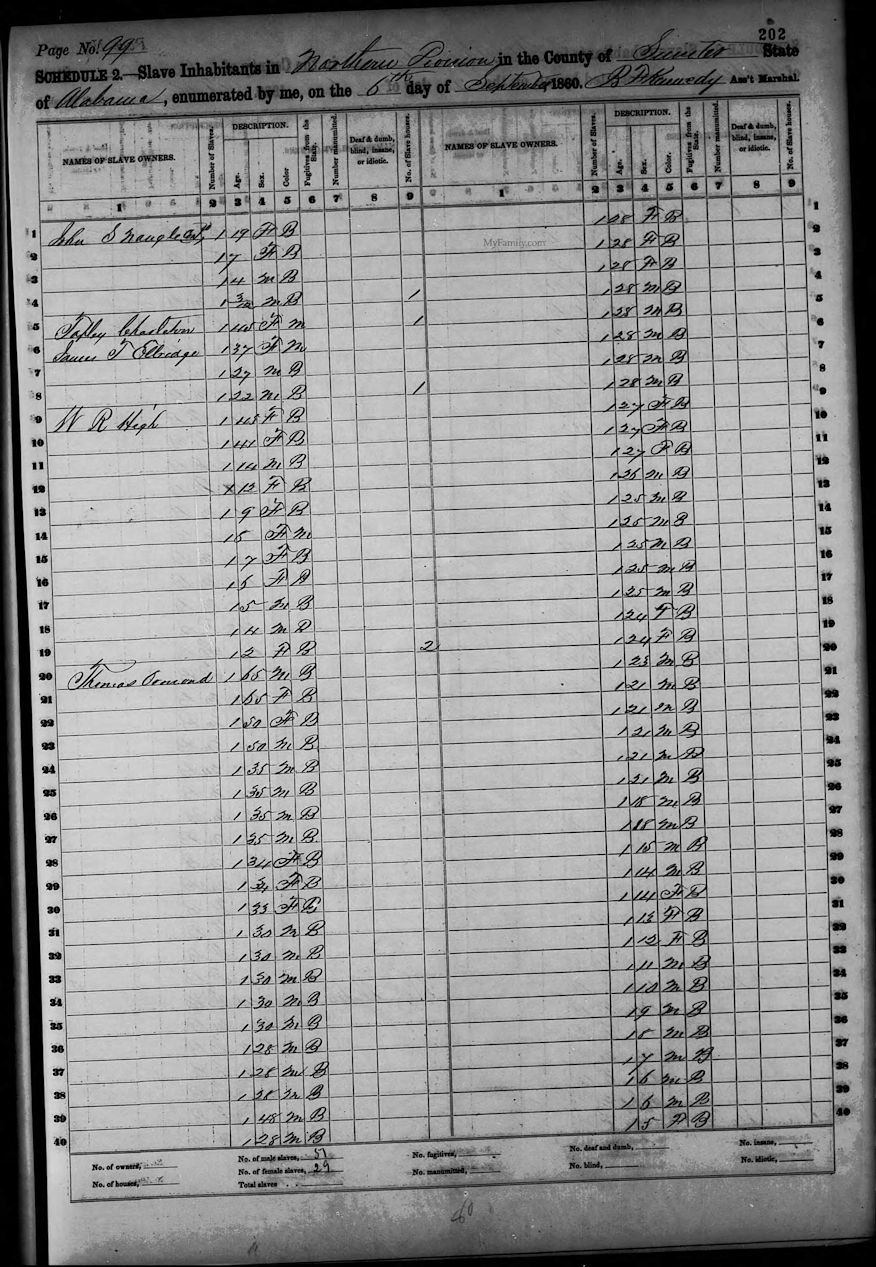 202
Page No. 99
SCHEDULE 2.—Slave Inhabitants in Northern Division in the County of Sumter State
of Alabama, enumerated by me, on the 6th day of September 1860. B F Kennedy Ass't Marshal.
NAMES OF SLAVE OWNERS. Number of Slaves. DESCRIPTION. Age. Sex. Color Fugitives from the State. Number manumitted. Deaf & dumb, blind, insane, or idiotic. No. of Slave houses. NAMES OF SLAVE OWNERS. Number of Slaves. DESCRIPTION. Age. Sex. Color. Fugitives from the State. Number manumitted. Deaf & dumb, blind, insane, or idiotic. No. of Slave houses.
1 2 3 4 5 6 7 8 9 1 2 3 4 5 6 7 8 9
1 John S 1 19 F B 1 28 F B 1
2 1 7 F B 1 28 F B 2
3 1 4 M B 1 28 F B 3
4 1 M B 1 1 28 M B 4
5 1 F M 1 1 28 M B 5
6 James T 1 37 F M 1 28 M B 6
7 1 27 M B 1 28 M B 7
8 1 22 M B 1 1 28 M B 8
9 W R High 1 F B 1 27 F B 9
10 1 41 F B 1 27 F B 10
11 1 14 M B 1 27 F B 11
12 F B 1 26 M B 12
13 1 9 F B 1 25 M B 13
14 1 8 F M 1 25 M B 14
15 1 7 F B 1 25 M B 15
16 1 6 F B 1 25 M B 16
17 1 5 M B 1 25 M B 17
18 1 4 M B 1 24 F B 18
19 1 2 F B 2 1 24 F B 19
20 Thomas Ormond 1 65 M B 1 23 M B 20
21 1 65 F B 1 21 M B 21
22 1 50 F B 1 21 M B 22
23 1 50 M B 1 21 M B 23
24 1 35 M B 1 21 M B 24
25 1 35 M B 1 21 M B 25
26 1 35 M B 1 18 M B 26
27 1 35 M B 1 18 M B 27
28 1 34 F B 1 15 M B 28
29 1 34 F B 1 14 M B 29
30 1 33 F B 1 14 F B 30
31 1 30 M B 1 13 F B 31
32 1 30 M B 1 12 F B 32
33 1 30 M B 1 11 M B 33
34 1 30 M B 1 10 M B 34
35 1 30 M B 1 9 M B 35
36 1 28 M B 1 8 M B 36
37 1 28 M B 1 7 M B 37
38 1 28 M B 1 6 M B 38
39 1 48 M B 1 6 M B 39
40 1 28 M B 1 5 F B 40
No. of owners, No. of male slaves, 51 No. fugitives, No. deaf and dumb, No. insane,
No. of houses, No. of female slaves, 29 No. manumitted, No. blind, No. idiotic,
Total slaves
80
MyFamily.com